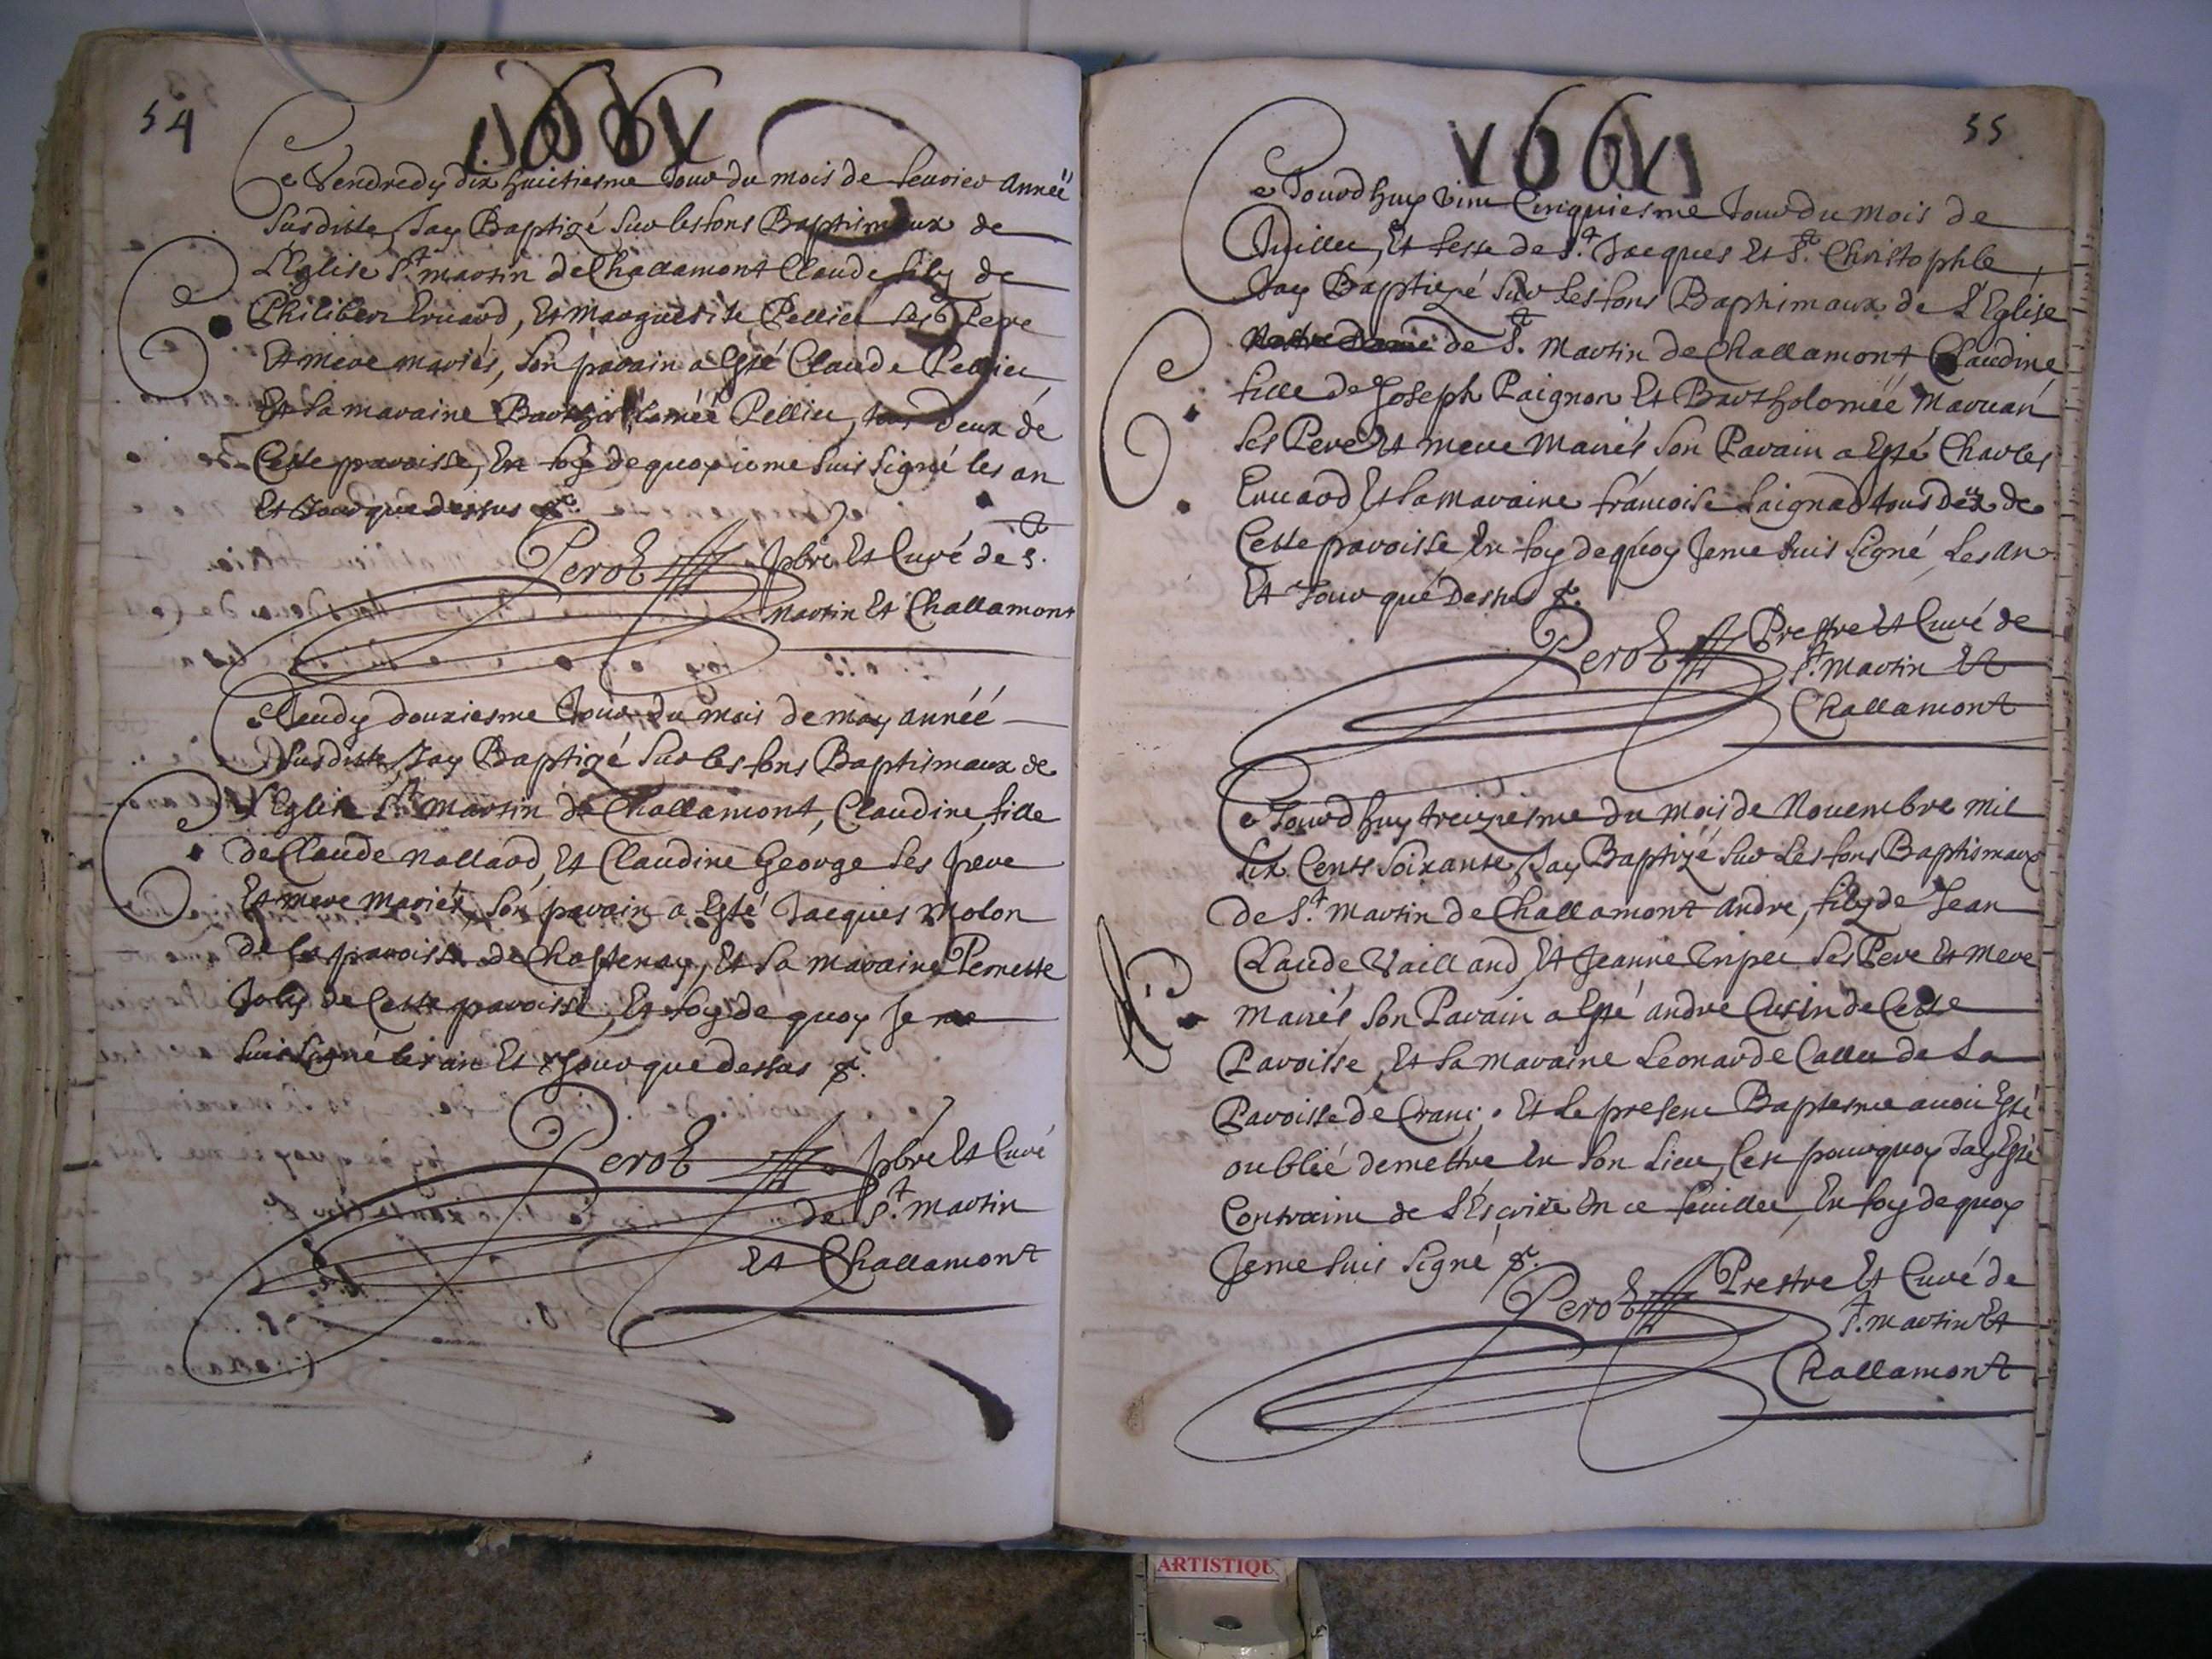 54
1661
Ce Vendredy dix huictiesme Jour du mois de feurier Anneë
susditte, Jay Baptizé sur les fons Baptismaux de
L'Eglise St martin de Challamont Claude filz de
Philiber Eruard, Et Marguerite Pellieu ses Pere
Et mere mariés, son parain a Esté Claude Pellieu
Et sa maraine Barthollomeé Pellieu, tous deux de
Cette paroisse, En foy de quoy ie me suis signé les an
Et Jour que dessus &c.
Perot pbre Et Curé de St
Martin Et Challamont
Ce Jeudy douziesme Jour du mois de may anneé
susditte, Jay Baptizé sur les fons Baptismaux de
L'Eglise St Martin de Challamont, Claudine, fille
de Claude Nallard, Et Claudine George ses pere
Et mere Mariés, son parain a Esté Jacques Molon
de la paroisse de Chastenay, Et sa maraine Pernette
Joly de Cette paroisse, En foy de quoy Je me
suis signé les an Et Jour que dessus &c.
Perot pbre Et Curé
de St Martin
Et Challamont
55
1661
Ce Jourdhuy vint Cinquiesme Jour du mois de
Juillet, Et feste de St Jacques Et St Christophle,
Jay Baptizé sur les fons Baptimaux de L'Eglise
Nostre Dame de St Martin de Challamont, Claudine
fille de Joseph Paignon Et Bartholomeë Maruan
ses Pere Et mere Mariés son Parain a Esté Charles
Eruard Et sa maraine francoise Paignon tous deux de
Cette paroisse, En foy de quoy Je me suis signé, Les an
Et Jour que Dessus &c.
Perot Prestre Et Curé de
St Martin Et
Challamont
Ce Jourdhuy treiziesme du mois de Nouembre mil
six Cents soixante, Jay Baptizé sur Les fons Baptismaux
de St Martin de Challamont andre, filz de Jean
Claude Vailland, Et Jeanne ses Pere Et mere
Mariés son Parain a Esté andré Cusin de Cette
Paroisse, Et sa maraine Leonarde Callet de La
Paroisse de Crans. Et le present Baptesme auoit Esté
oublié de mettre En son Lieu, Cest pourquoy Jay Esté
Contraint de L'Escrire En ce feuillet, En foy de quoy
Je me suis signé &c.
Perot Prestre Et Curé de
St Martin Et
Challamont
ARTISTIQU